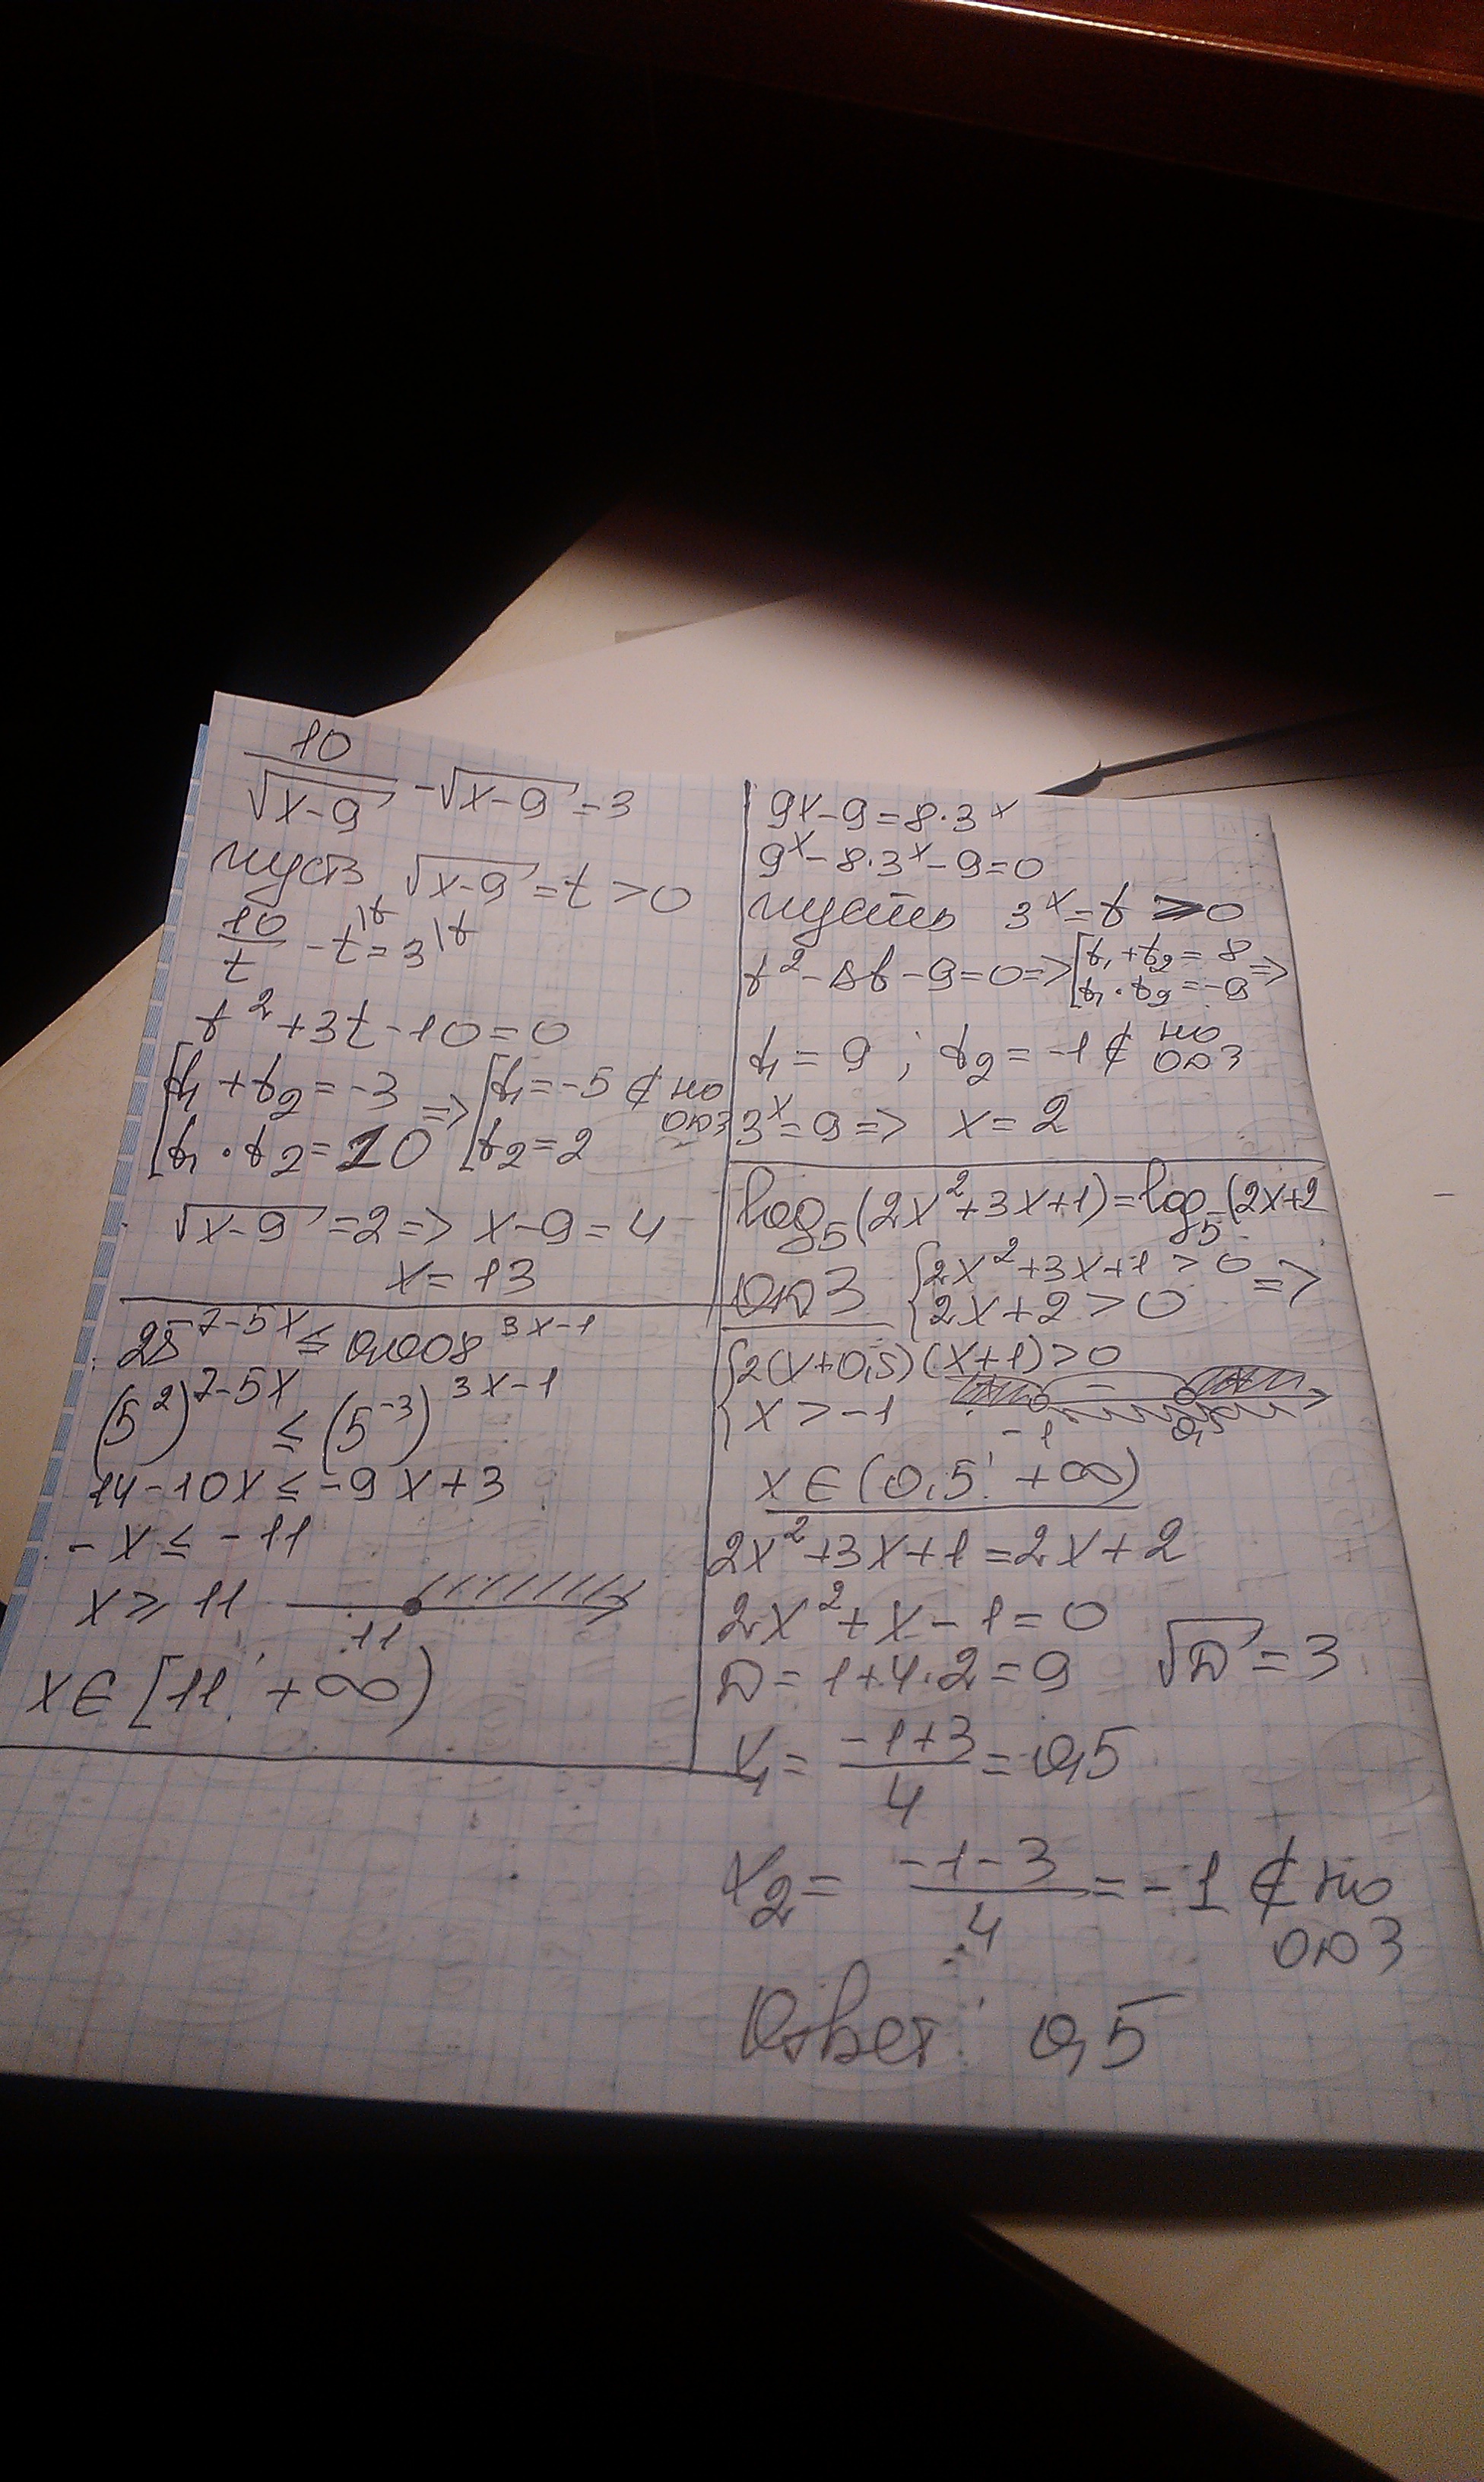 10/√(x-9) - √(x-9) = 3
пусть √(x-9) = t > 0
10/t - t^(\t) = 3^(\t)
t² + 3t - 10 = 0
[t₁ + t₂ = -3 => [t₁ = -5 ∉ по ОДЗ
[t₁ · t₂ = 10 [t₂ = 2
√(x-9) = 2 => x - 9 = 4
x = 13
25^(7-5x) ≤ 0,008^(3x-1)
(5²)^(7-5x) ≤ (5⁻³)^(3x-1)
14 - 10x ≤ -9x + 3
-x ≤ -11
x ≥ 11
11
x ∈ [11; +∞)
9x - 9 = 8·3ˣ
9ˣ - 8·3ˣ - 9 = 0
пусть 3ˣ = t > 0
t² - 8t - 9 = 0 => [t₁ + t₂ = 8
[t₁ · t₂ = -9 =>
t₁ = 9 ; t₂ = -1 ∉ по ОДЗ
3ˣ = 9 => x = 2
log₅(2x² + 3x + 1) = log₅(2x+2
ОДЗ {2x² + 3x + 1 > 0
{2x + 2 > 0 =>
{2(x+0,5)(x+1) > 0
{x > -1
+ - +
-1 0,5
x ∈ (0,5; +∞)
2x² + 3x + 1 = 2x + 2
2x² + x - 1 = 0
D = 1 + 4·2 = 9 √D = 3
x₁ = (-1+3)/4 = 0,5
x₂ = (-1-3)/4 = -1 ∉ по ОДЗ
Ответ: 0,5